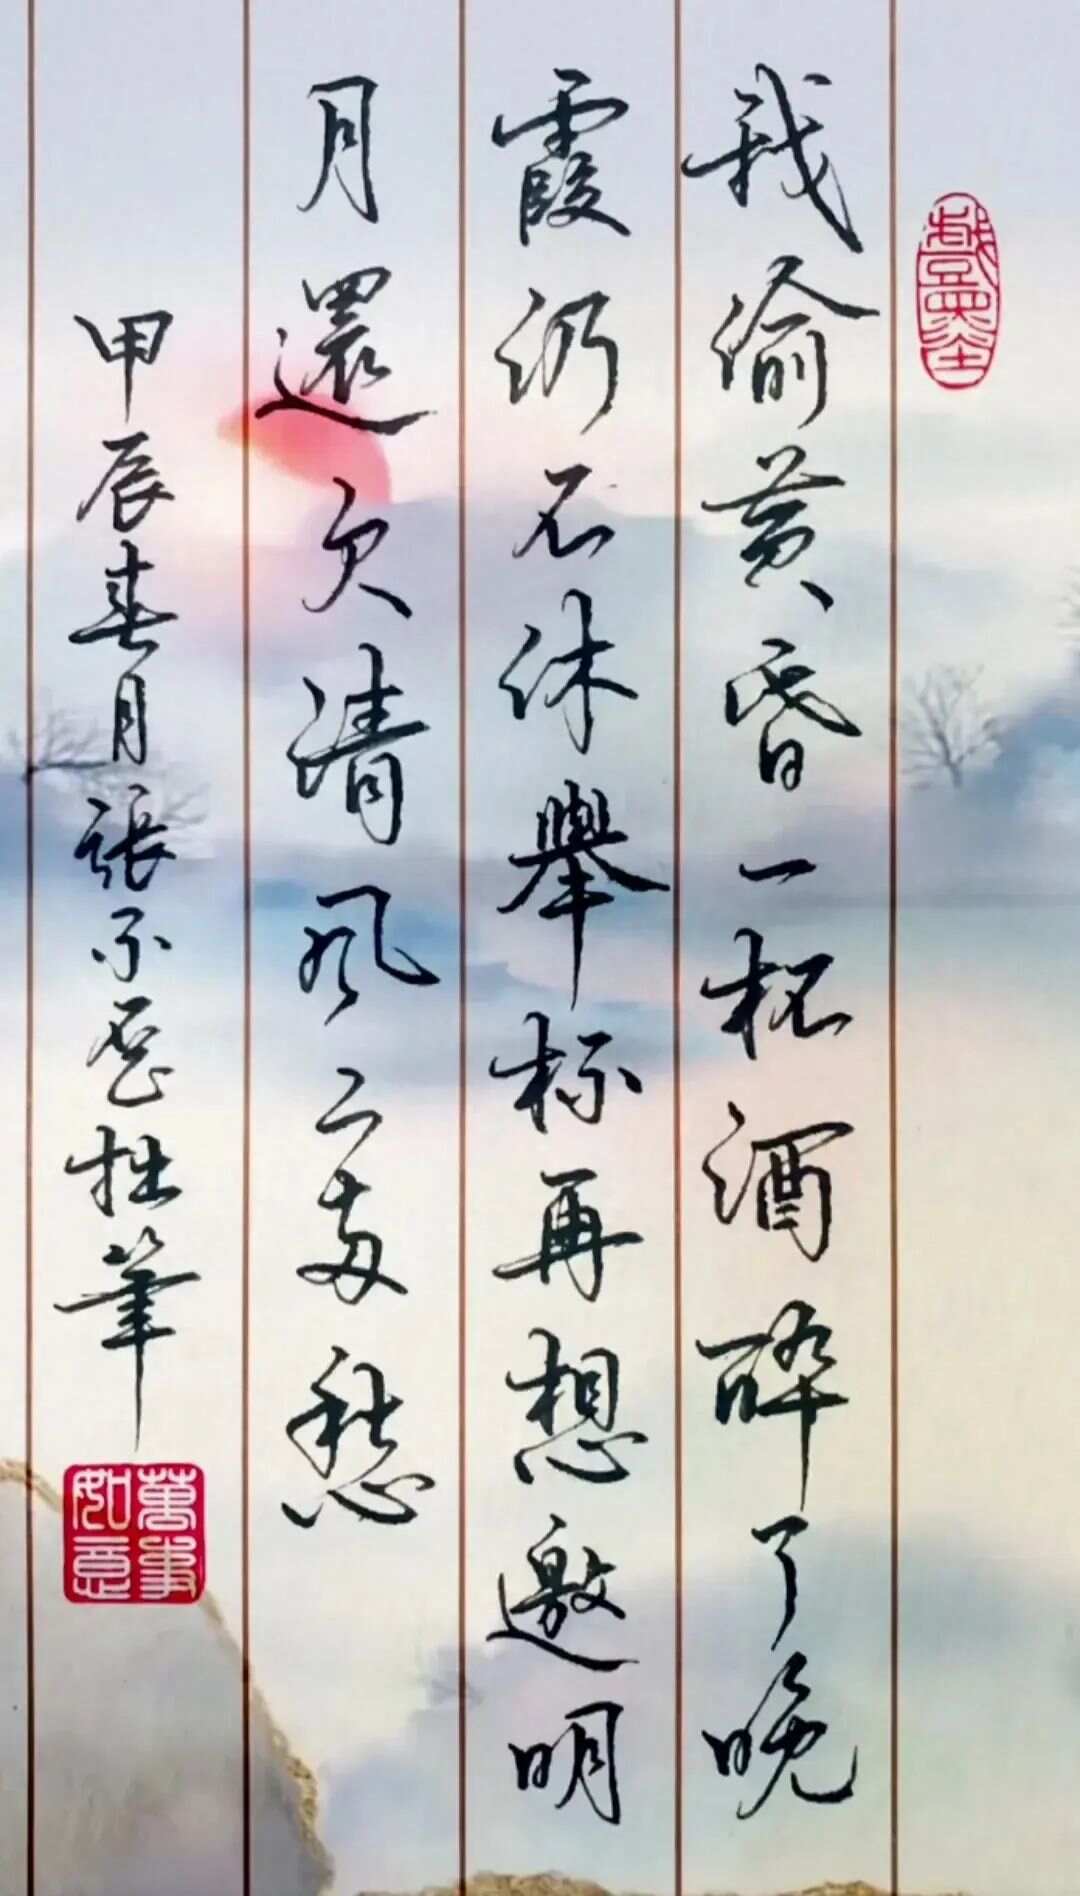 我偷黄昏一杯酒醉了晚
霞仍不休舉杯再想邀明
月還欠清風二两愁
甲辰春月張不拙筆
萬事如意